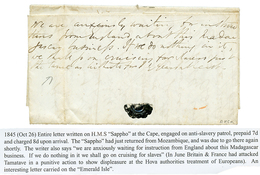 We are anxiously waiting for
from England about this Mada
gascar business. If we do nothing in it, we
shall go on cruising for slaves
1845 (Oct 26) Entire letter written on H.M.S "Sappho" at the Cape, engaged on anti-slavery patrol, prepaid 7d
and charged 8d upon arrival. The "Sappho" had just returned from Mozambique, and was due to go there again
shortly. The writer also says "we are anxiously waiting for instruction from England about this Madagascar
business. If we do nothing in it we shall go on cruising for slaves" (In June Britain & France had attacked
Tamatave in a punitive action to show displeasure at the Hova authorities treatment of Europeans). An
interesting letter carried on the "Emerald Isle".